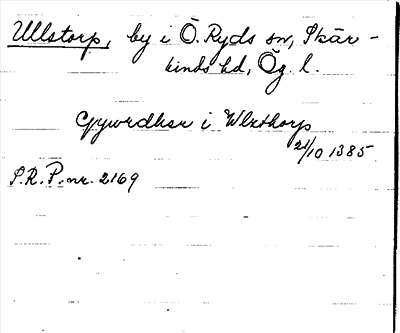 Ullstorp, by i Ö. Ryds sn, Skär-
kinds hd, Ög. l.
Gywrdher i Wlxthorp
21/10 1385
S.R.P. nr. 2169